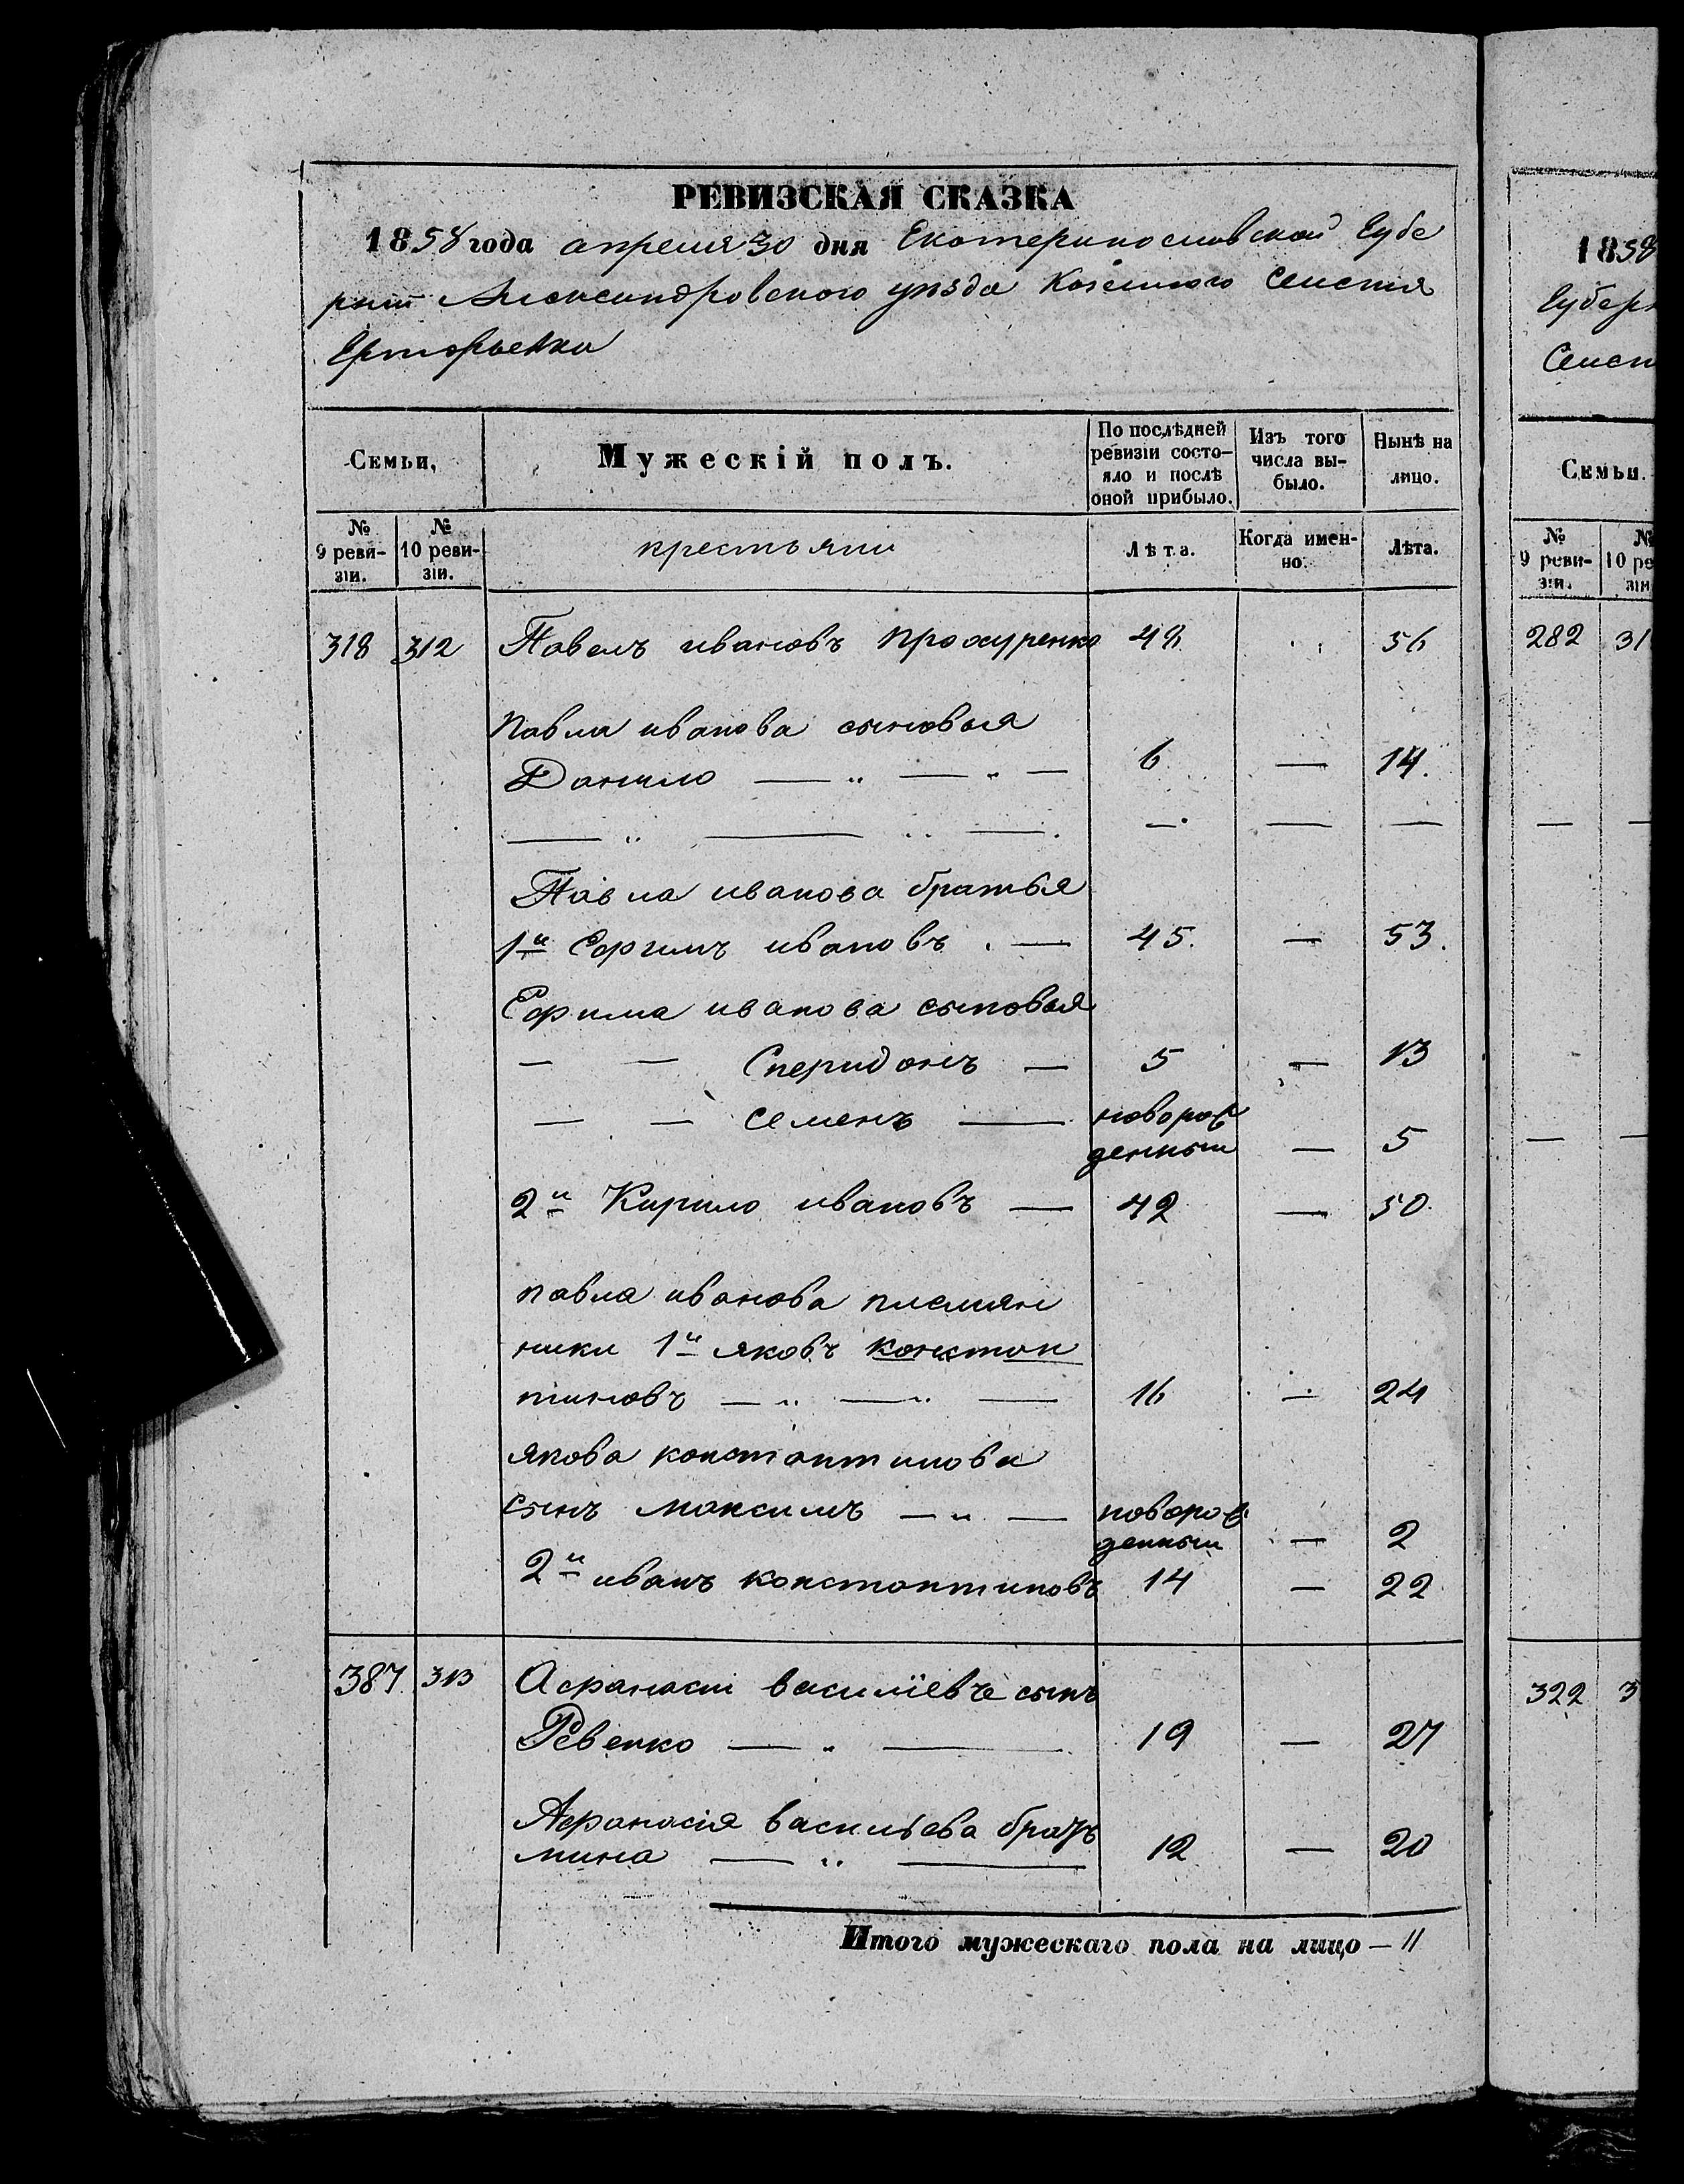 РЕВИЗСКАЯ СКАЗКА
1858 года апреля 30 дня Екатеринославской Губе
рнии Александровского уезда Казенного Селения
Григорьевки
Семьи,
Мужескій полъ.
По послѣдней ревизіи состо-
яло и послѣ
оной прибыло.
Изъ того
числа вы-
было.
Нынѣ на
лицо.
№
9 реви-
зіи.
№
10 реви-
зіи.
крестьяни
Лѣта.
Когда имен-
но.
Лѣта.
318 312 Павелъ ивановъ Прохуренко 48 56
Павла иванова сыновья
Данило — „ — „ — 6 — 14.
— „ — „ — . — . — —
Павла иванова братья
1й Ефимъ ивановъ . — 45. — 53.
Ефима иванова сыновья
— — Сперидонъ — 5 — 13
— — Семенъ — новорож
денный — 5
2й Кирило ивановъ — 42 — 50.
павла иванова племян
ники 1й яковъ констан
тиновъ — „ — „ — 16 — 24
якова константинова
сынъ максимъ — „ — новорож
денный — 2
2й иванъ константиновъ 14 — 22
387 313 Афанасий василіевъ сынъ
Ревенко — „ — 19 — 27
Афанасія васильева братъ
мина — „ — 12 — 20
Итого мужескаго пола на лицо — 11
1858
Губерн
Селен
Семьи.
№
9 реви-
зіи.
№
10 ре
зіи
282 31
— —
— —
322 3